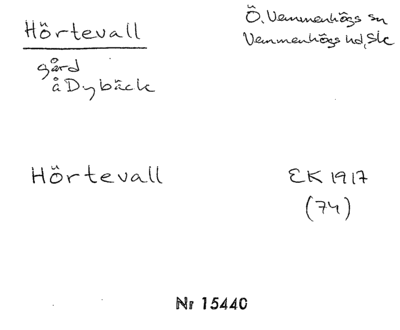 Hörtevall
Ö. Vemmenhögs sn
Vemmenhögs hd, Sk
gård
å Dybäck
Hörtevall
EK 1917
(74)
Nr 15440